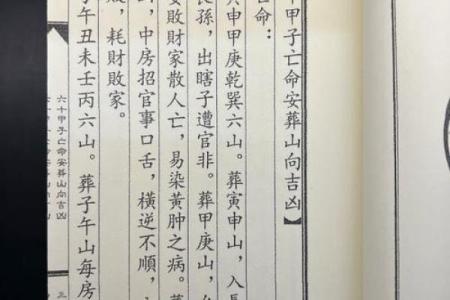 甲子亡命安葬山向吉凶】
亡命：
寅申甲庚乾巽六山。葬寅申山，入長
長孫，出瞎子遭官非。葬甲庚山，
安敗財家散人亡，易染黃肿之病。葬
，中房招官事口舌，橫逆不順，
敗，耗財敗家。
子午丑未壬丙六山。葬子午山每房
六十甲子亡命安葬山向吉凶
三